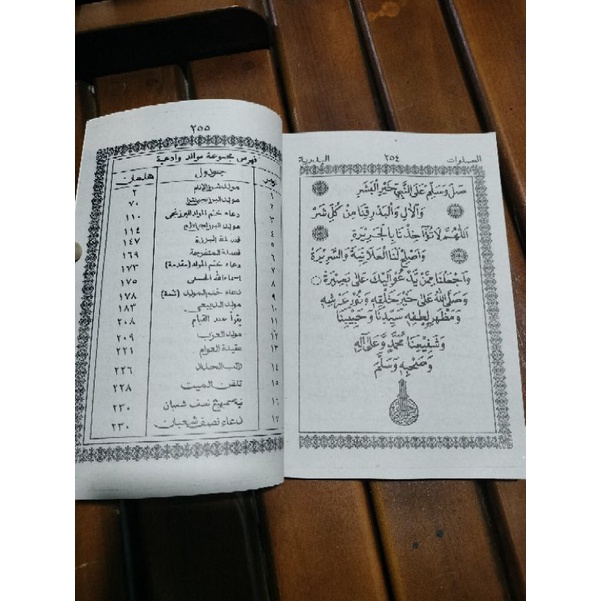 الصلوات ٢٥٤ البدرية
صَلِّ وَسَلِّمْ عَلَى النَّبِيِّ خَيْرِ الْبَشَرِ
وَالْآلِ وَالْبَدْرِ قِنَا مِنْ كُلِّ شَرِّ
اَللّٰهُمَّ لَا تُؤَاخِذْنَا بِالْجَرِيْرَةِ
وَأَصْلِحْ لَنَا الْعَلَانِيَةَ وَالسَّرِيْرَةَ
وَاجْعَلْنَا مِمَّنْ يَدْعُوْ إِلَيْكَ عَلَى بَصِيْرَةٍ
وَصَلَّى اللهُ عَلَى خَيْرِ خَلْقِهِ وَنُوْرِ عَرْشِهِ
وَمَظْهَرِ لُطْفِهِ سَيِّدِنَا وَحَبِيْبِنَا
وَشَفِيْعِنَا مُحَمَّدٍ وَّعَلَى آلِهِ
وَصَحْبِهِ وَسَلَّمَ
٢٥٥
فهرس مجموعة موالد وادعية
نمبر جدول هلمان
١ مولد شرف الانام ٢
٢ مولد البرزنجي ٧٠
٣ دعاء ختم المولد البرزنجي ١١٠
٤ مولد البرزنجي ١١٤
٥ قصيدة البردة ١٤٧
٦ ١٦٩
٧ دعاء ختم المولد (مقدمة) ١٧٣
٨ اسماء الله الحسنى ١٧٥
٩ دعاء ختم المولد ١٧٨
١٠ مولد الديبعي ١٨٣
١١ يقرأ عند القيام ٢٠٨
١٢ مولد العزب ٢٠٩
١٣ عقيدة العوام ٢٢١
١٤ راتب الحداد ٢٢٦
١٥ تلقين الميت ٢٢٨
١٦ نصف شعبان ٢٣٠
١٧ دعاء نصف شعبان ٢٣٠